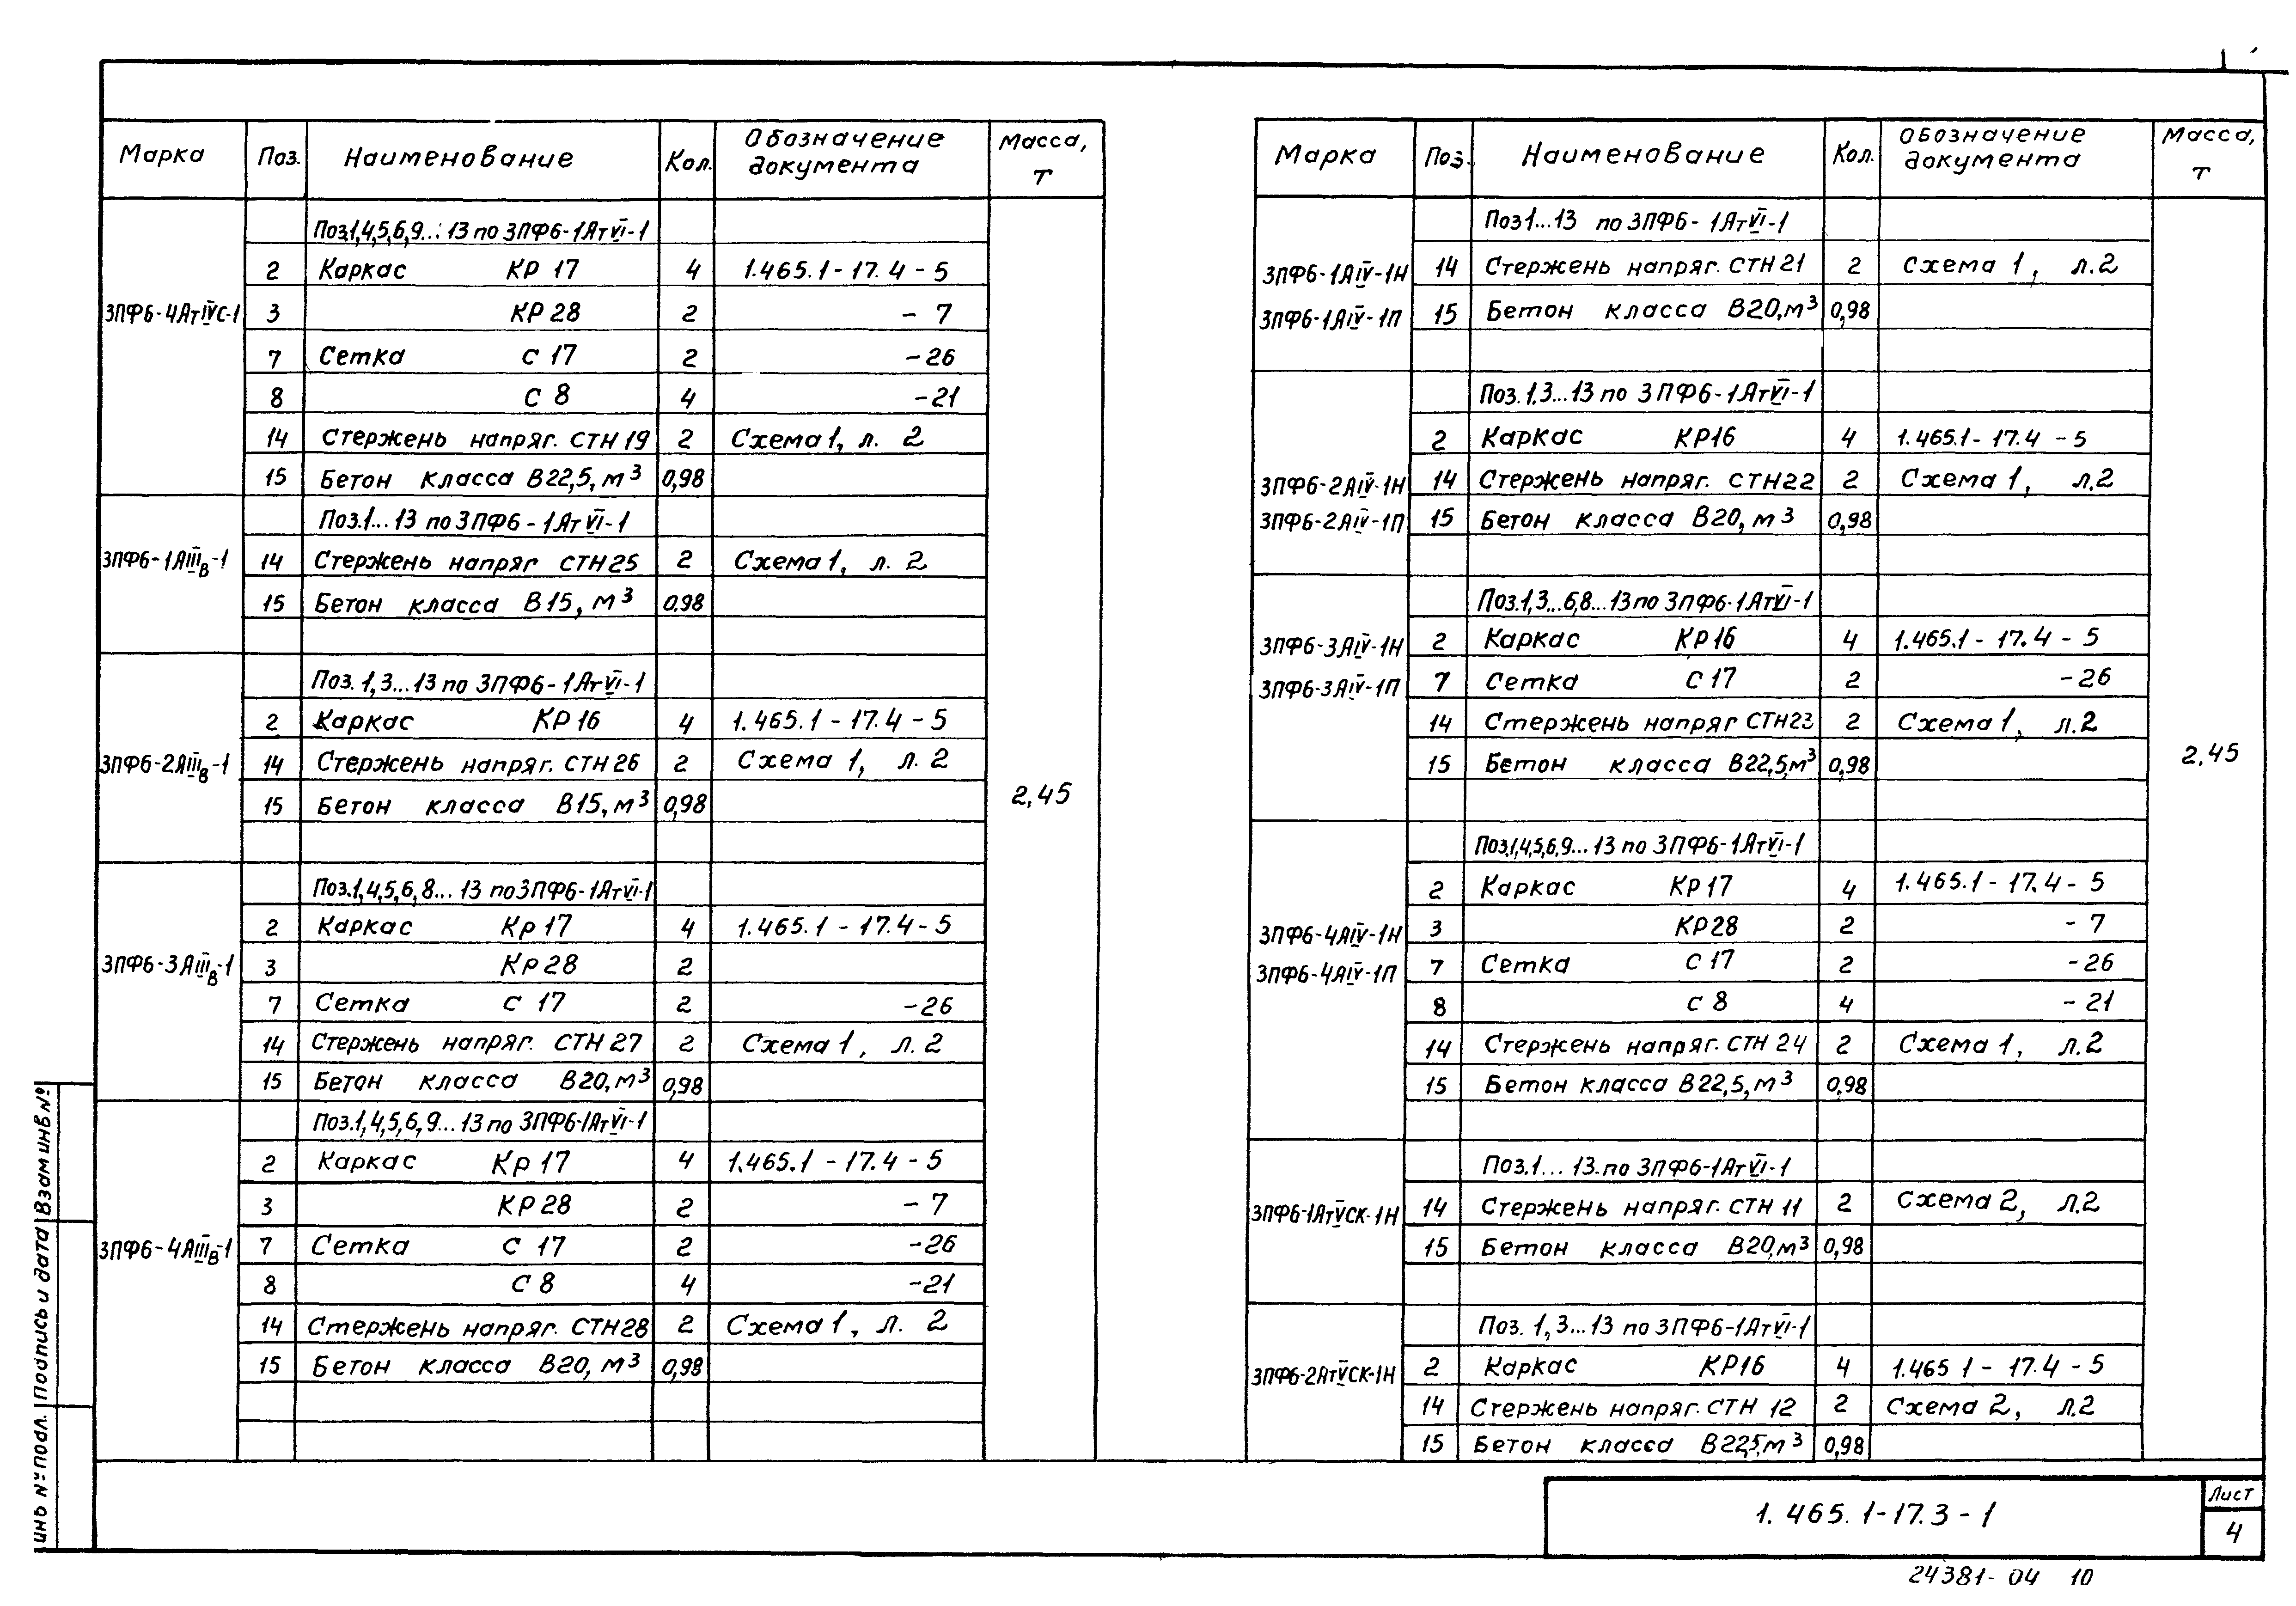 Марка Поз. Наименование Кол. Обозначение документа Масса, т
Поз.1,4,5,6,9...13 по 3ПФ6-1АтVI-1
2 Каркас КР 17 4 1.465.1-17.4-5
3ПФ6-4АтIVС-1 3 КР 28 2 -7
7 Сетка С 17 2 -26
8 С 8 4 -21
14 Стержень напряг. СТН 19 2 Схема 1, л. 2
15 Бетон класса В22,5, м³ 0,98
Поз.1...13 по 3ПФ6-1АтVI-1
3ПФ6-1АIIIв-1 14 Стержень напряг СТН25 2 Схема 1, л. 2
15 Бетон класса В15, м³ 0.98
Поз. 1,3...13 по 3ПФ6-1АтVI-1
2 Каркас КР 16 4 1.465.1-17.4-5
3ПФ6-2АIIIв-1 14 Стержень напряг. СТН 26 2 Схема 1, л. 2
15 Бетон класса В15, м³ 0,98
2,45
Поз.1,4,5,6,8...13 по 3ПФ6-1АтVI-1
2 Каркас Кр 17 4 1.465.1-17.4-5
3ПФ6-3АIIIв-1 3 Кр 28 2
7 Сетка С 17 2 -26
14 Стержень напряг. СТН 27 2 Схема 1, л. 2
15 Бетон класса В20, м³ 0,98
Поз.1,4,5,6,9...13 по 3ПФ6-1АтVI-1
2 Каркас Кр 17 4 1.465.1-17.4-5
3 КР 28 2 -7
3ПФ6-4АIIIв-1 7 Сетка С 17 2 -26
8 С 8 4 -21
14 Стержень напряг. СТН28 2 Схема 1, л. 2
15 Бетон класса В20, м³ 0,98
Марка Поз. Наименование Кол. Обозначение документа Масса, т
Поз 1...13 по 3ПФ6-1АтVI-1
3ПФ6-1АIV-1Н 14 Стержень напряг. СТН 21 2 Схема 1, л.2
3ПФ6-1АIV-1П 15 Бетон класса В20, м³ 0,98
Поз. 1,3...13 по 3ПФ6-1АтVI-1
2 Каркас КР16 4 1.465.1-17.4-5
3ПФ6-2АIV-1Н 14 Стержень напряг. СТН22 2 Схема 1, л.2
3ПФ6-2АIV-1П 15 Бетон класса В20, м³ 0,98
Поз.1,3...6,8...13 по 3ПФ6-1АтVI-1
3ПФ6-3АIV-1Н 2 Каркас КР 16 4 1.465.1-17.4-5
3ПФ6-3АIV-1П 7 Сетка С 17 2 -26
14 Стержень напряг СТН23 2 Схема 1, л.2
15 Бетон класса В22,5, м³ 0,98
2,45
Поз.1,4,5,6,9...13 по 3ПФ6-1АтVI-1
2 Каркас КР 17 4 1.465.1-17.4-5
3ПФ6-4АIV-1Н 3 КР28 2 -7
3ПФ6-4АIV-1П 7 Сетка С 17 2 -26
8 С 8 4 -21
14 Стержень напряг. СТН 24 2 Схема 1, л.2
15 Бетон класса В22,5, м³ 0.98
Поз.1...13 по 3ПФ6-1АтVI-1
3ПФ6-1АтVСК-1Н 14 Стержень напряг. СТН 11 2 Схема 2, л.2
15 Бетон класса В20, м³ 0,98
Поз. 1,3...13 по 3ПФ6-1АтVI-1
3ПФ6-2АтVСК-1Н 2 Каркас КР16 4 1.465 1-17.4-5
14 Стержень напряг. СТН 12 2 Схема 2, л.2
15 Бетон класса В22,5, м³ 0,98
инв № подл. Подпись и дата Взам инв №
1.465.1-17.3-1
Лист
4
24381-04 10